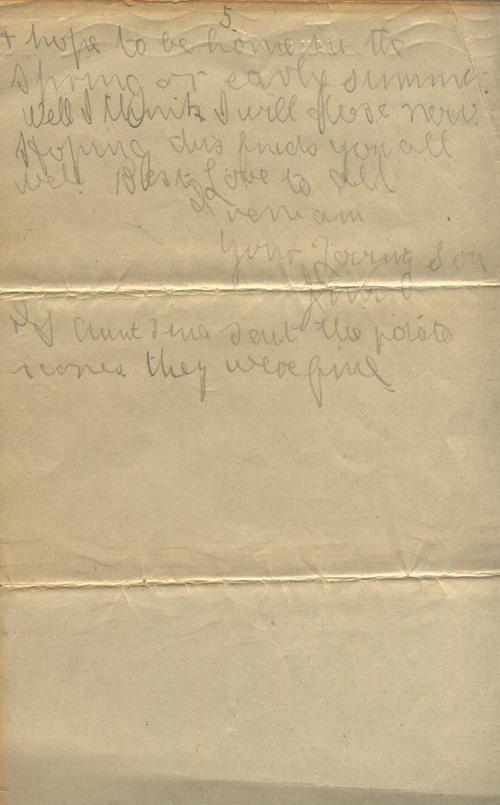 5
+ hope to be home in the
Spring or early summer.
Well I think I will close now
Hoping this finds you all
well Best Love to all
I remain
Your loving Son
PS Aunt sent the potato
scones they were fine